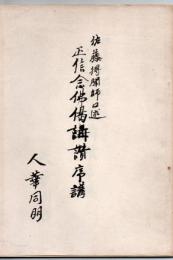 佐藤博聞師口述
正信念佛偈講讃序講
人華同明